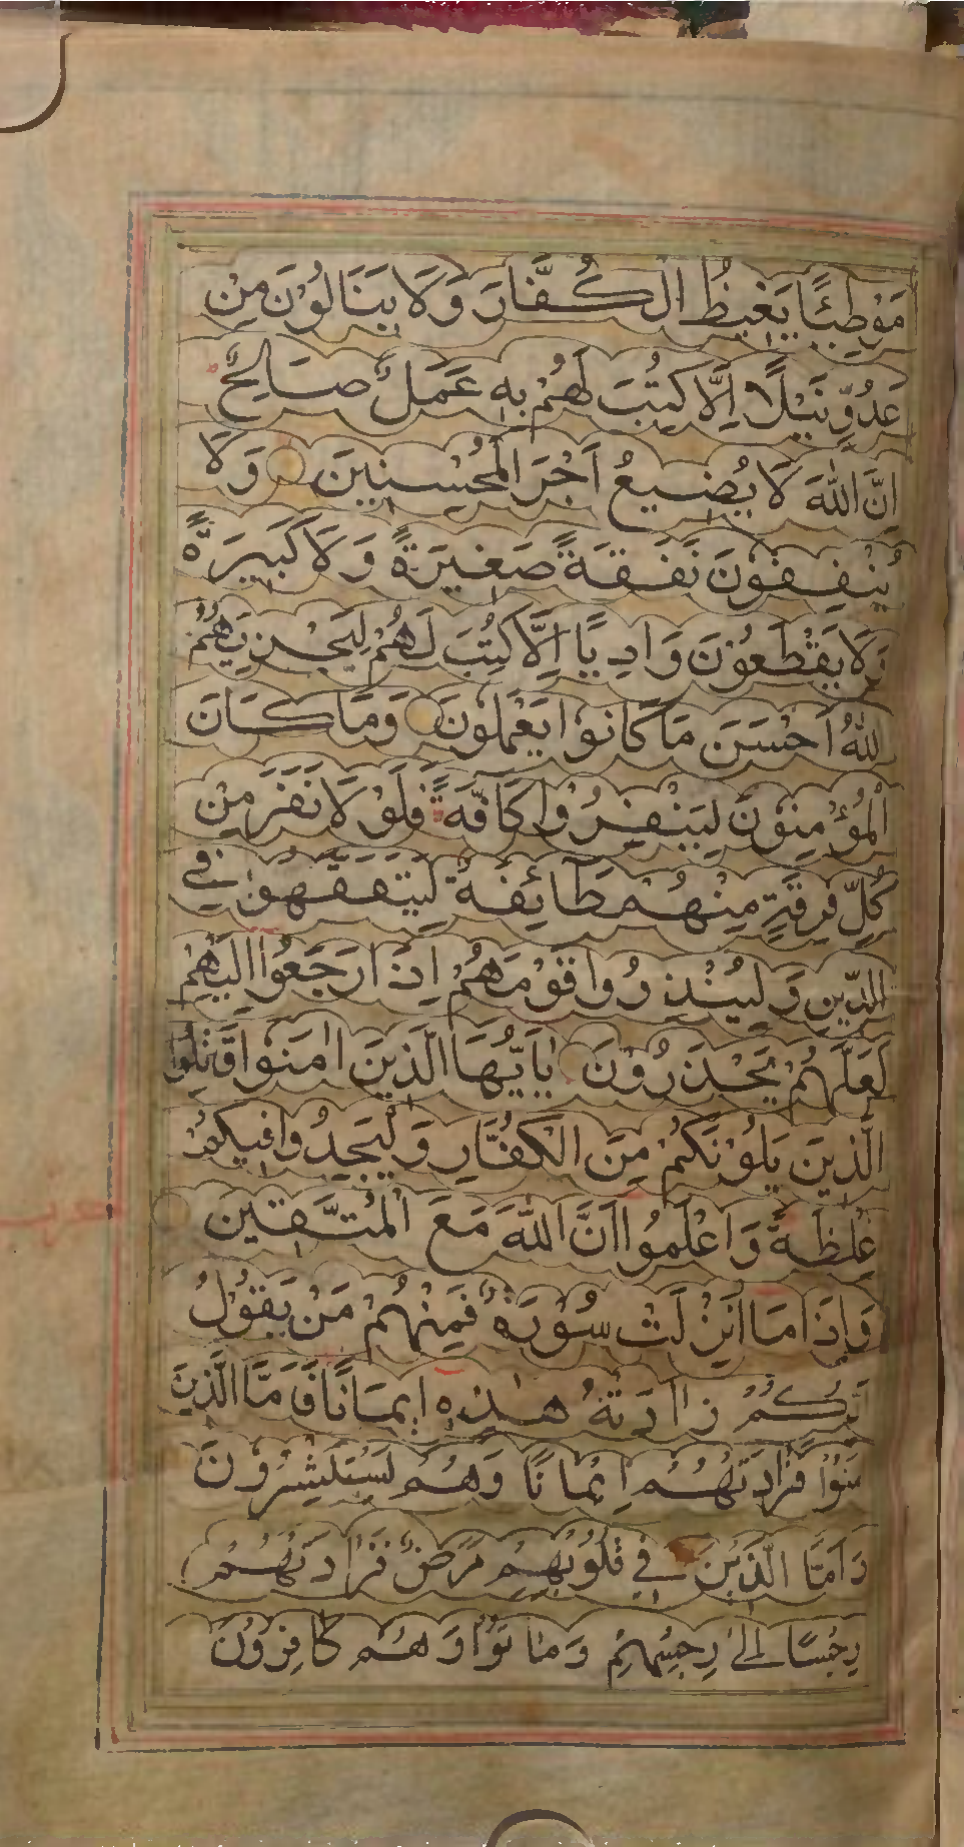 مَوْطِئًا يَغِيظُ الْكُفَّارَ وَلَا يَنَالُوْنَ مِنْ
عَدُوٍّ نَيْلًا اِلَّا كُتِبَ لَهُمْ بِهٖ عَمَلٌ صَالِحٌ
اِنَّ اللّٰهَ لَا يُضِيعُ اَجْرَ الْمُحْسِنِيْنَ وَلَا
يُنْفِقُوْنَ نَفَقَةً صَغِيْرَةً وَلَا كَبِيرَةً
وَلَا يَقْطَعُوْنَ وَادِيًا اِلَّا كُتِبَ لَهُمْ لِيَجْزِيَهُمُ
اللّٰهُ اَحْسَنَ مَا كَانُوا يَعْمَلُوْنَ وَمَا كَانَ
الْمُؤْمِنُوْنَ لِيَنْفِرُوْا كَافَّةً فَلَوْلَا نَفَرَ مِنْ
كُلِّ فِرْقَةٍ مِنْهُمْ طَائِفَةٌ لِيَتَفَقَّهُوْا فِي
الدِّيْنِ وَلِيُنْذِرُوا قَوْمَهُمْ اِذَا رَجَعُوْا اِلَيْهِمْ
لَعَلَّهُمْ يَحْذَرُوْنَ يٰاَيُّهَا الَّذِيْنَ اٰمَنُوا قَاتِلُوا
الَّذِيْنَ يَلُوْنَكُمْ مِنَ الْكُفَّارِ وَلْيَجِدُوْا فِيْكُمْ
غِلْظَةً وَاعْلَمُوْا اَنَّ اللّٰهَ مَعَ الْمُتَّقِيْنَ
وَاِذَا مَا اُنْزِلَتْ سُوْرَةٌ فَمِنْهُمْ مَنْ يَقُوْلُ
اَيُّكُمْ زَادَتْهُ هٰذِهٖ اِيْمَانًا فَاَمَّا الَّذِيْنَ
اٰمَنُوْا فَزَادَتْهُمْ اِيْمَانًا وَهُمْ يَسْتَبْشِرُوْنَ
وَاَمَّا الَّذِيْنَ فِي قُلُوْبِهِمْ مَرَضٌ فَزَادَتْهُمْ
رِجْسًا اِلٰى رِجْسِهِمْ وَمَاتُوْا وَهُمْ كَافِرُوْنَ